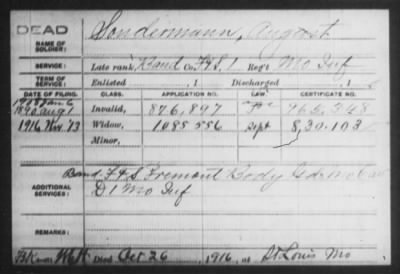 DEAD
Sondermann, August
NAME OF SOLDIER:
SERVICE: Late rank Band Co. F&S, 1 Reg't Mo Inf
TERM OF SERVICE: Enlisted , 1 Discharged , 1
DATE OF FILING. CLASS. APPLICATION NO. LAW. CERTIFICATE NO.
Invalid, 876,897
1916 Nov 13 Widow, 1085 556 Sept 8, 30-103
Minor,
ADDITIONAL SERVICES: Band F&S Fremont Body Gds Mo Cav
D 1 Mo Inf
Died Oct 26, 1916, at St Louis Mo